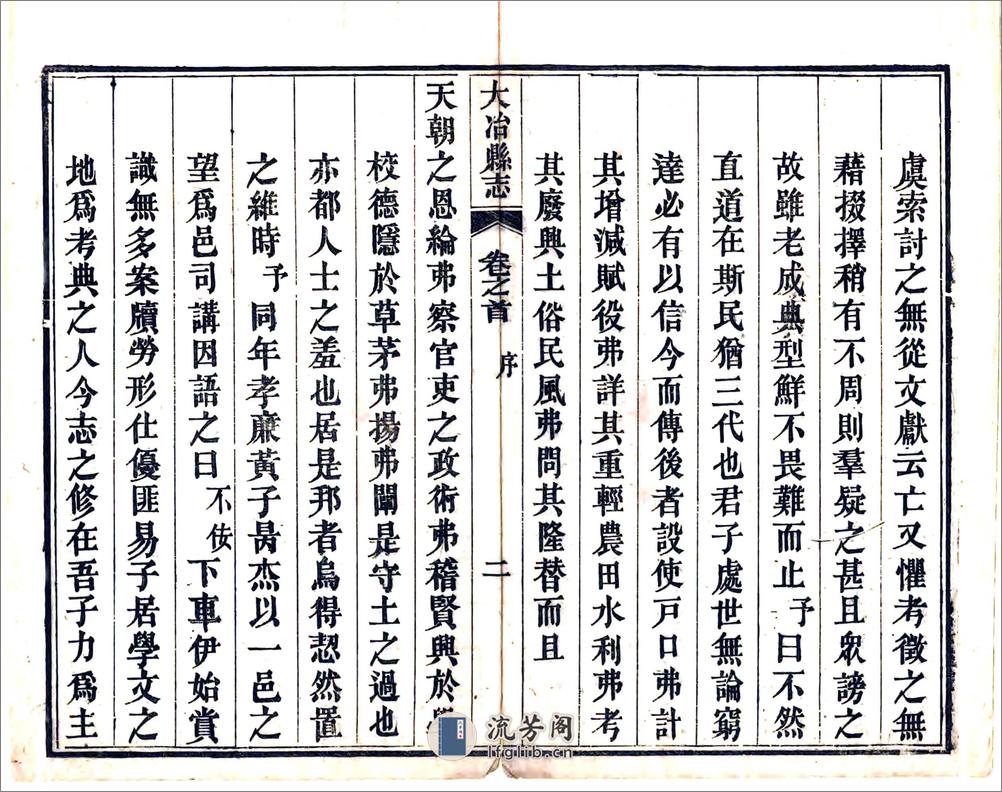 虞索討之無從文獻云亡又懼考徵之無
藉掇擇稍有不周則羣疑之甚且眾謗之
故雖老成典型鮮不畏難而止予曰不然
直道在斯民猶三代也君子處世無論窮
達必有以信今而傳後者設使戸口弗計
其增減賦役弗詳其重輕農田水利弗考
其廢興土俗民風弗問其隆替而且
大冶縣志 卷之首 序 二
天朝之恩綸弗察官吏之政術弗稽賢興於學
校德隱於草茅弗揚弗闡是守土之過也
亦都人士之羞也居是邦者烏得恝然置
之維時予同年孝廉黃子昺杰以一邑之
望爲邑司講因語之曰不佞下車伊始賞
識無多案牘勞形仕優匪易子居學文之
地爲考典之人今志之修在吾子力爲主
流芳阁
lfglib.cn